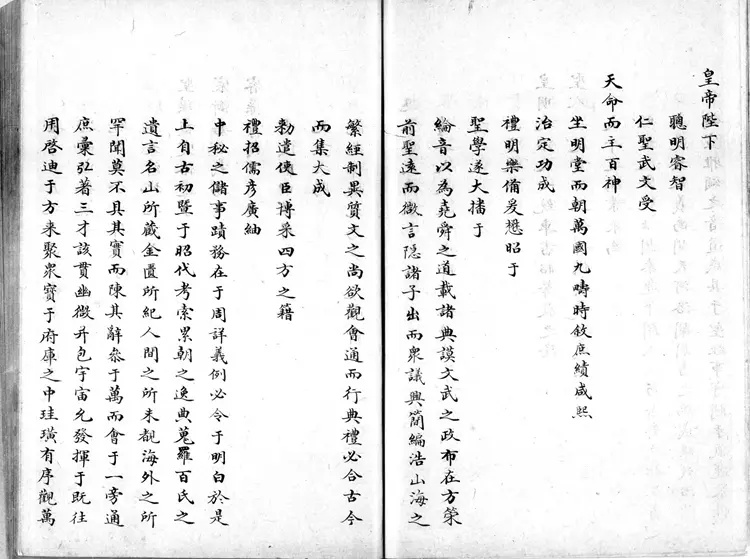 皇帝陛下
聰明睿智
仁聖武文受
天命而主百神
坐明堂而朝萬國九疇時敘庶績咸熙
治定功成
禮明樂備爰懋昭于
聖學遂大播于
綸音以為堯舜之道載諸典謨文武之政布在方策
前聖遠而微言隱諸子出而衆議興簡編浩山海之
繁經制異質文之尚欲觀會通而行典禮必合古今
而集大成
勑遣使臣博采四方之籍
禮招儒彦廣紬
中秘之儲事蹟務在于周詳義例必令于明白於是
上自古初暨于昭代考索累朝之逸典蒐羅百氏之
遺言名山所藏金匱所紀人間之所未覩海外之所
罕聞莫不具其實而陳其辭叅于萬而會于一旁通
庶彙弘著三才該貫幽微并包宇宙允發揮于既往
用啓迪于方来聚衆寳于府庫之中珪璜有序觀萬